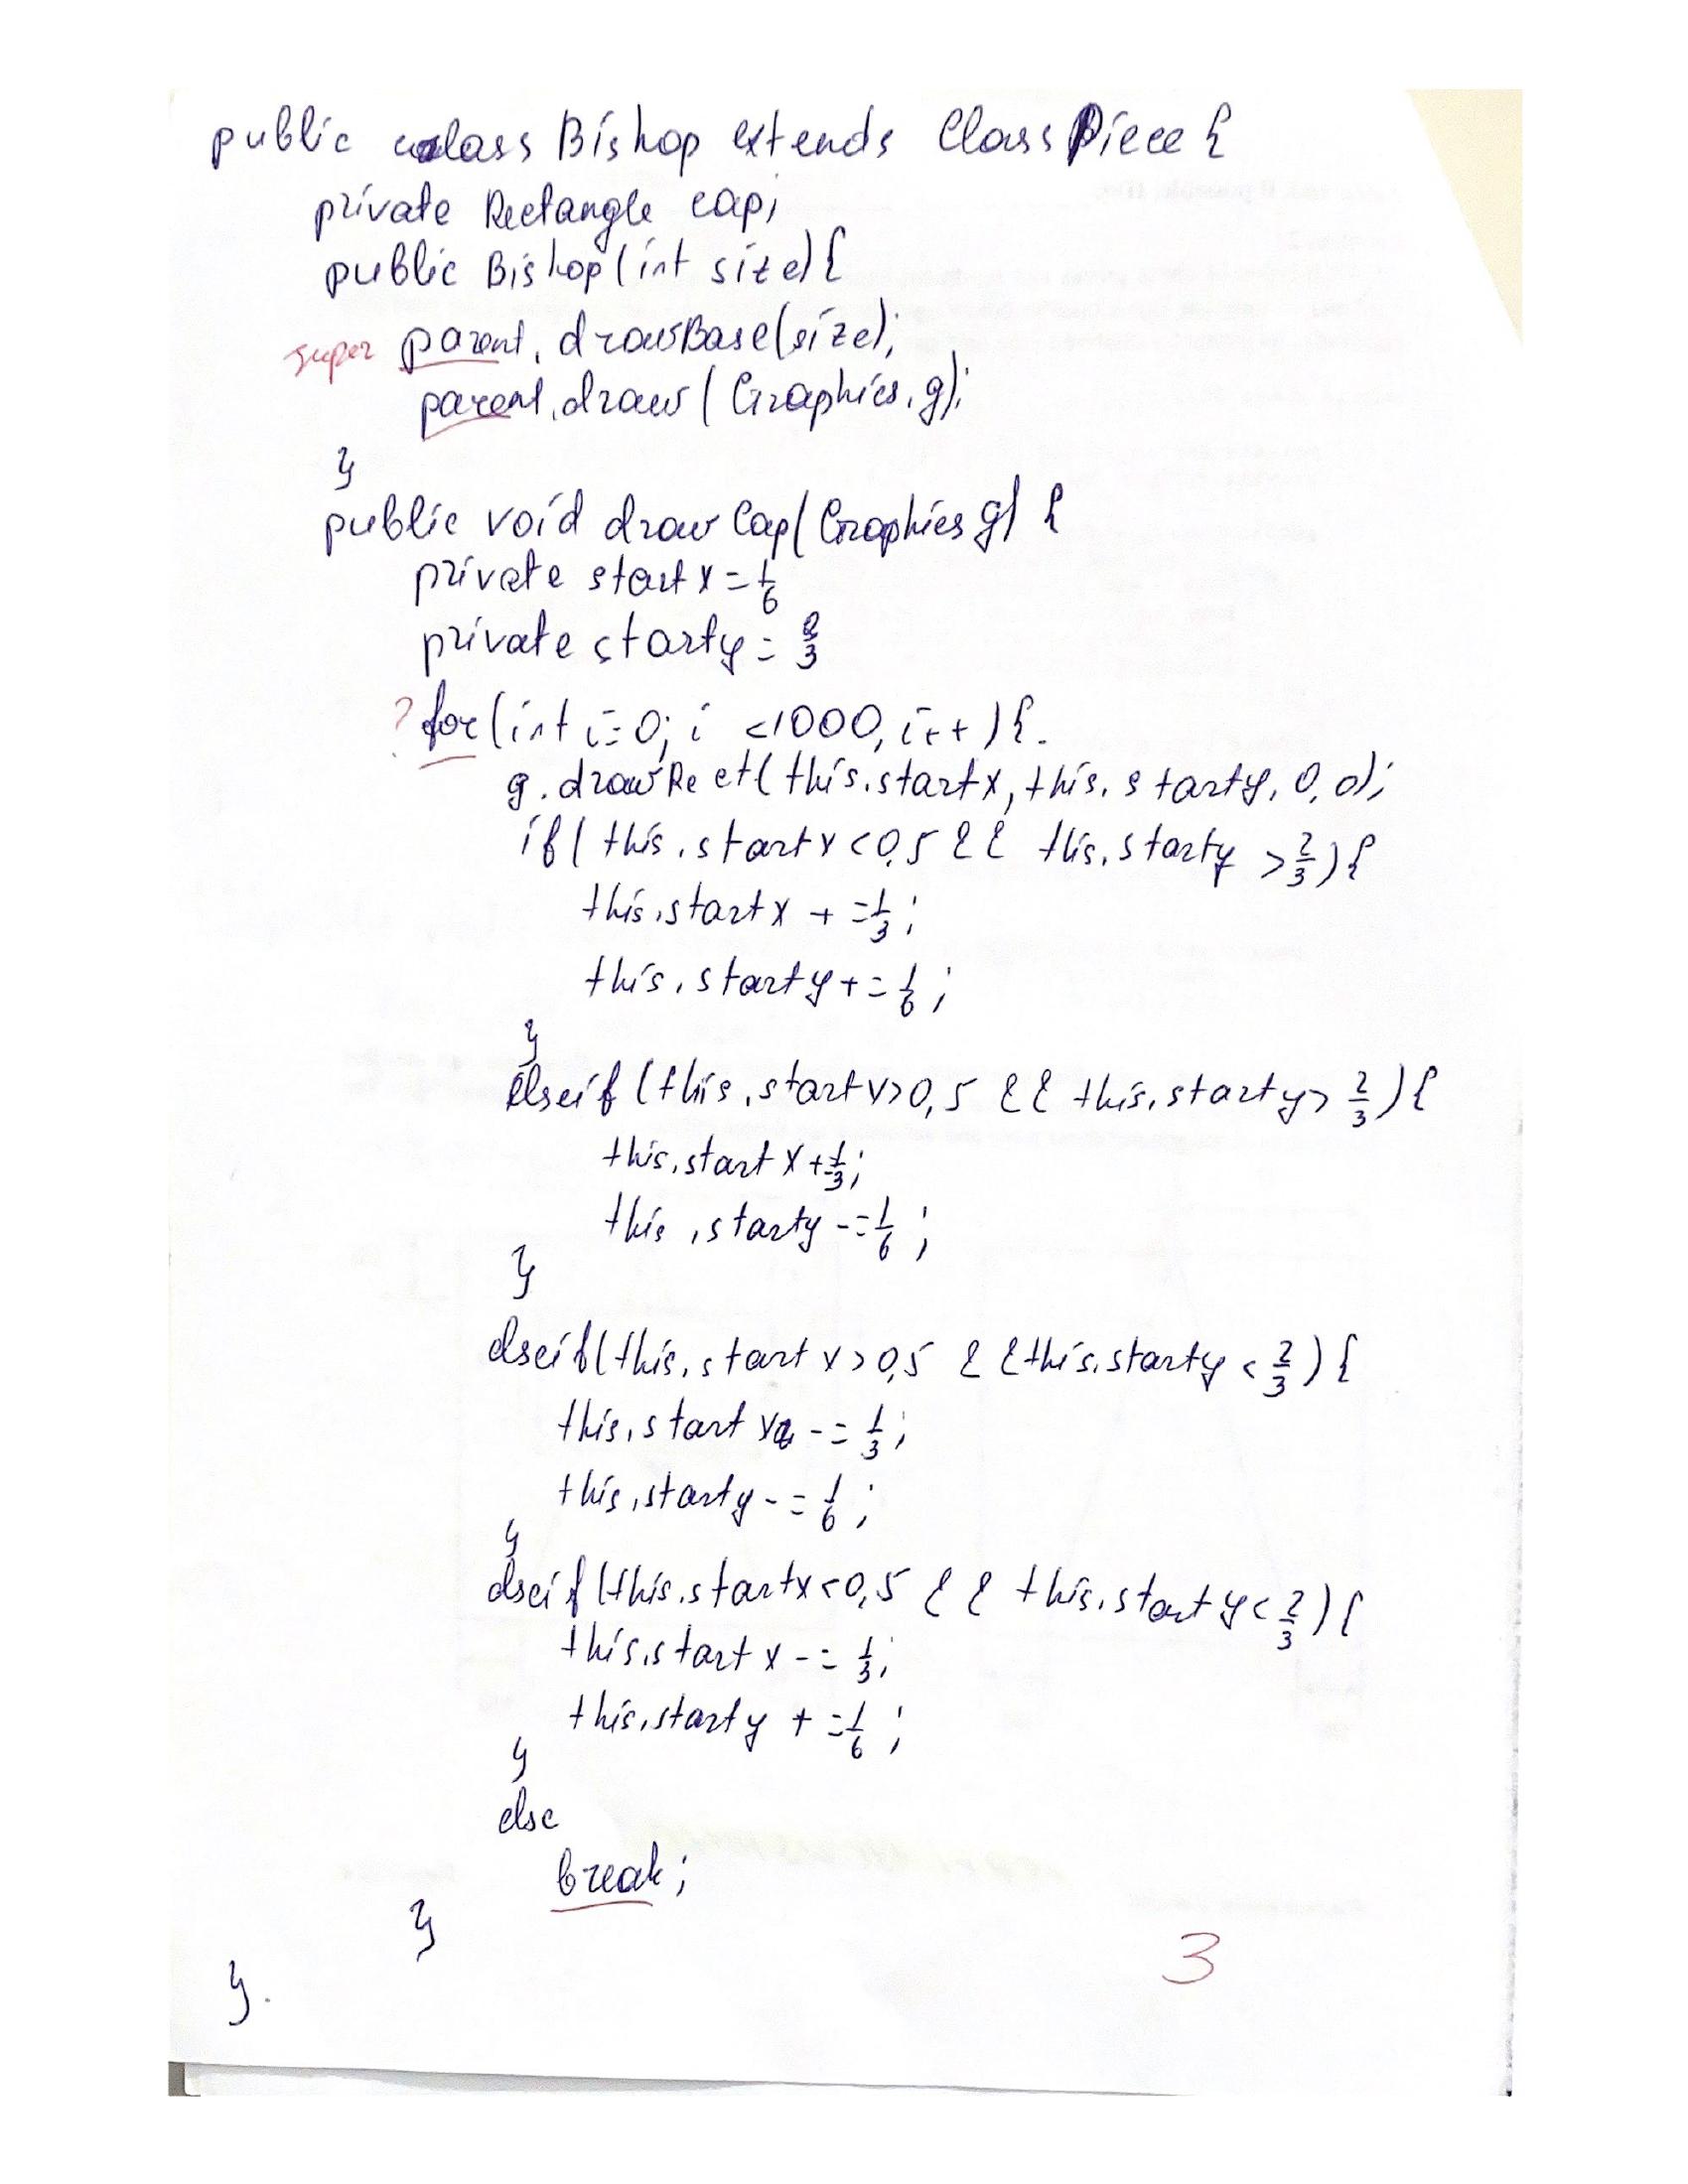 public class Bishop extends Class Piece {
private Rectangle cap;
public Bishop(int size){
super parent.drawBase(size);
parent.draw(Graphics.g);
}
public void draw Cap(Graphics g) {
private startx = 1/6
private starty = 2/3
? for(int i=0; i <1000, i++){.
g.drawRect(this.startx, this.starty, 0, 0);
if( this.startx <0,5 && this.starty > 2/3){
this.startx += 1/3;
this.starty += 1/6;
}
elseif (this.startx>0,5 && this.starty> 2/3){
this.startx += 1/3;
this.starty -= 1/6;
}
elseif(this.startx>0,5 &&this.starty < 2/3){
this.startx -= 1/3;
this.starty -= 1/6;
}
elseif(this.startx<0,5 && this.starty< 2/3){
this.startx -= 1/3;
this.starty += 1/6;
}
else
break;
}
}.
3